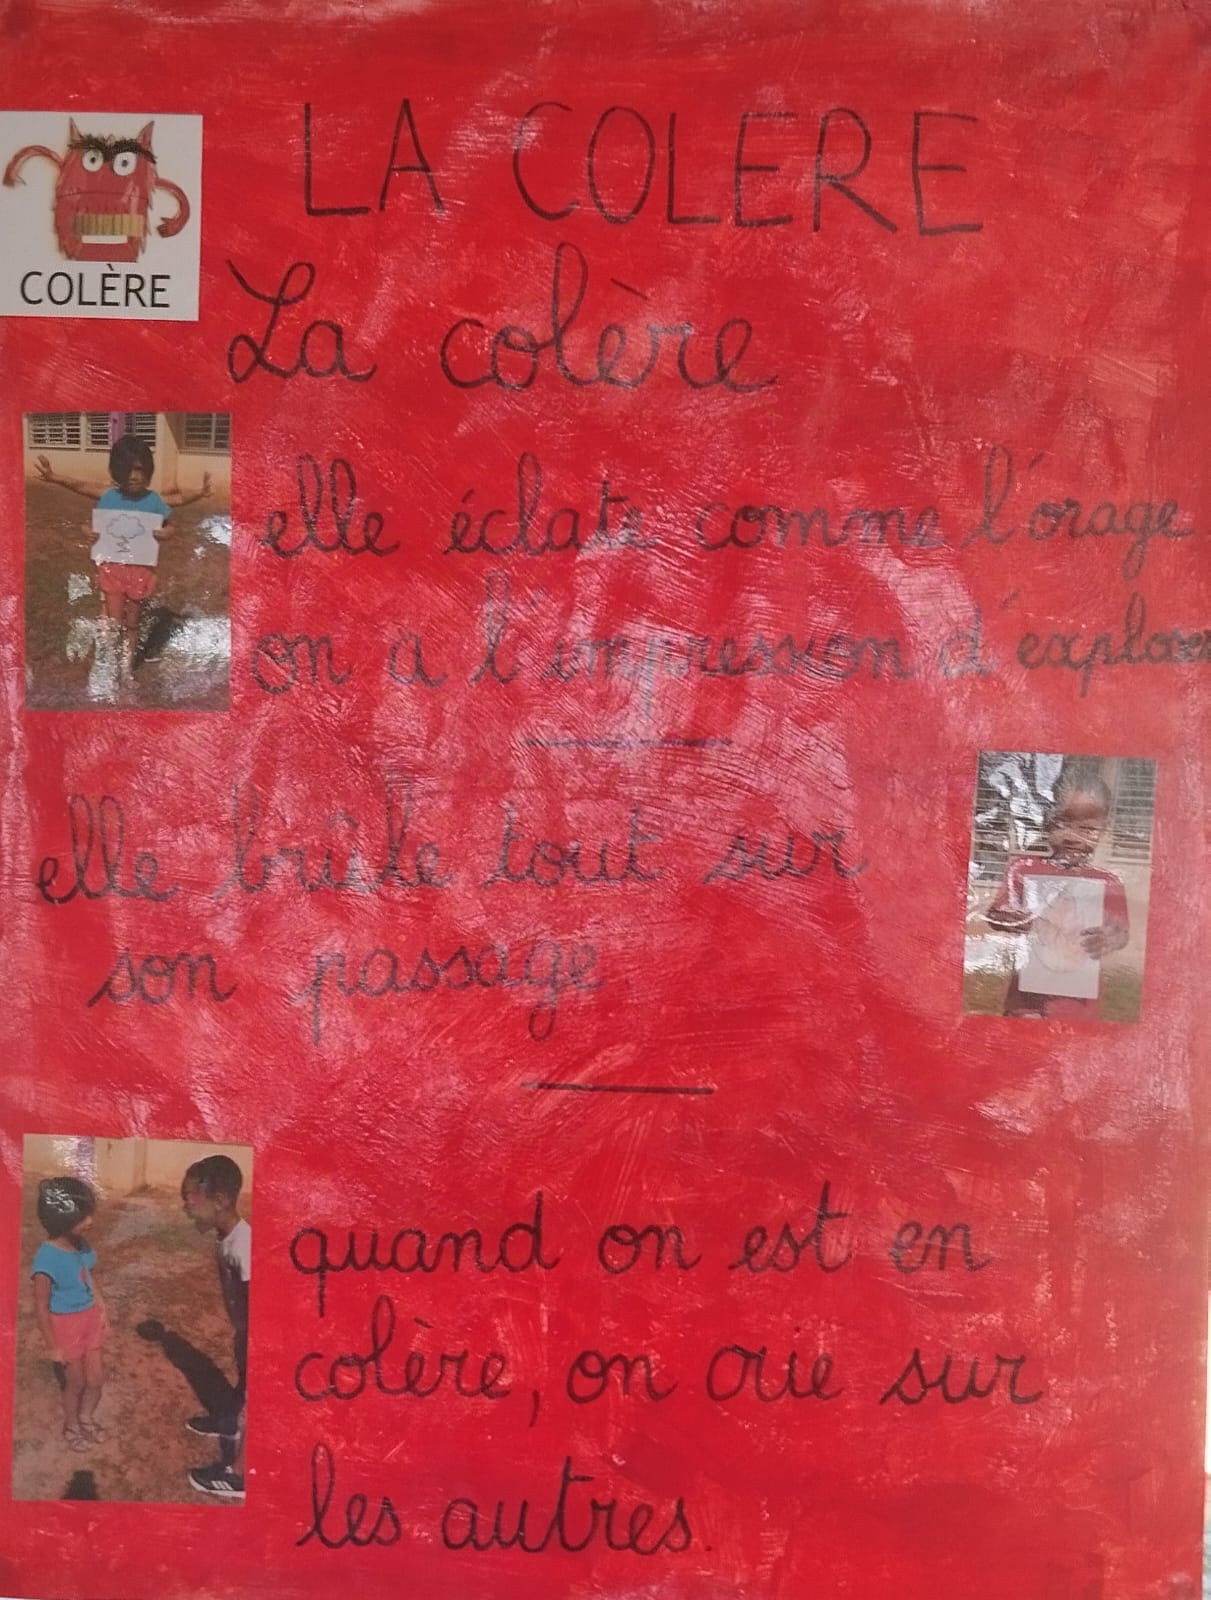 LA COLERE
COLÈRE
La colère
elle éclate comme l'orage
on a l'impression d'exploser
elle brûle tout sur
son passage.
quand on est en
colère, on crie sur
les autres.